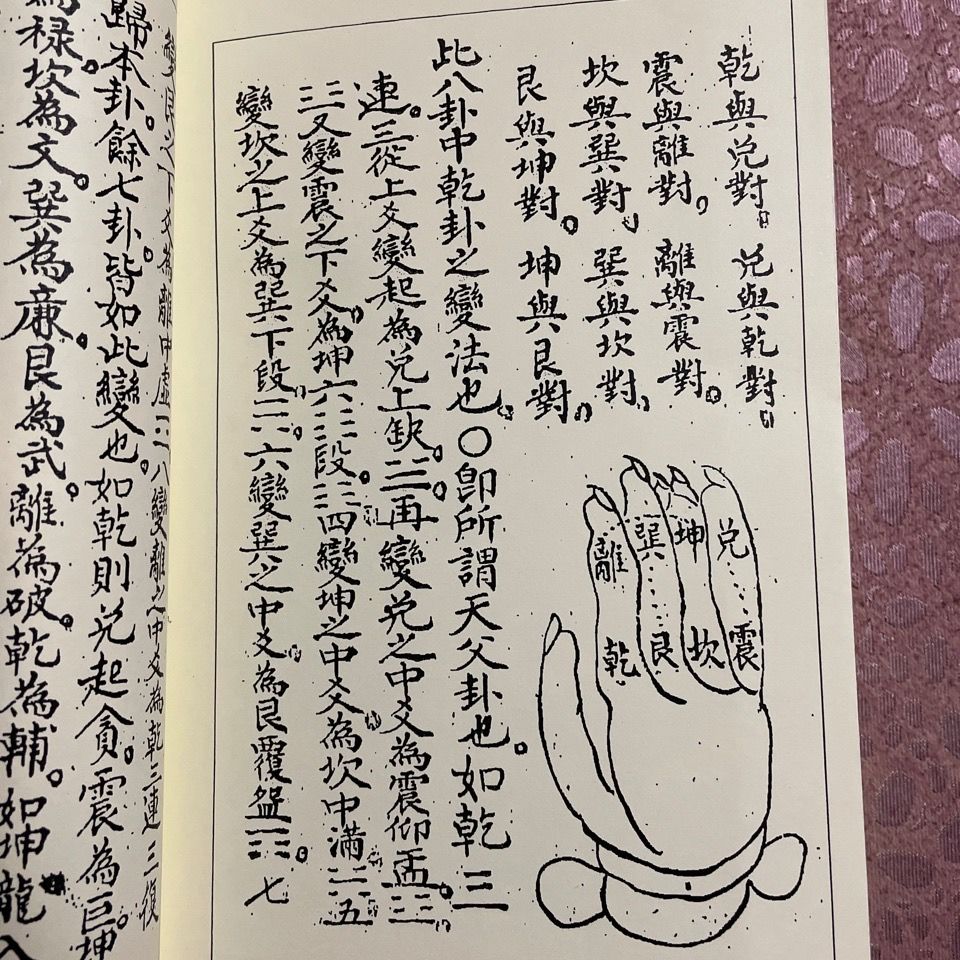 乾與兌對。兌與乾對。
震與離對。離與震對。
坎與巽對。巽與坎對。
艮與坤對。坤與艮對。
兌
坤
巽
離
震
坎
艮
乾
此八卦中乾卦之變法也。〇即所謂天父卦也。如乾☰
連。三從上爻變起為兌上缺。☱再變兌之中爻為震仰盂。☳
三又變震之下爻為坤六段。☷四變坤之中爻為坎中滿☵五
變坎之上爻為巽下段☴。六變巽之中爻為艮覆盌☶。七
變艮之下爻為離中虛☲八變離之中爻為乾三連☰復
歸本卦。餘七卦。皆如此變也。如乾則兌起貪。震為巨。坤
為祿。坎為文。巽為廉。艮為武。離為破。乾為輔。如坤龍入